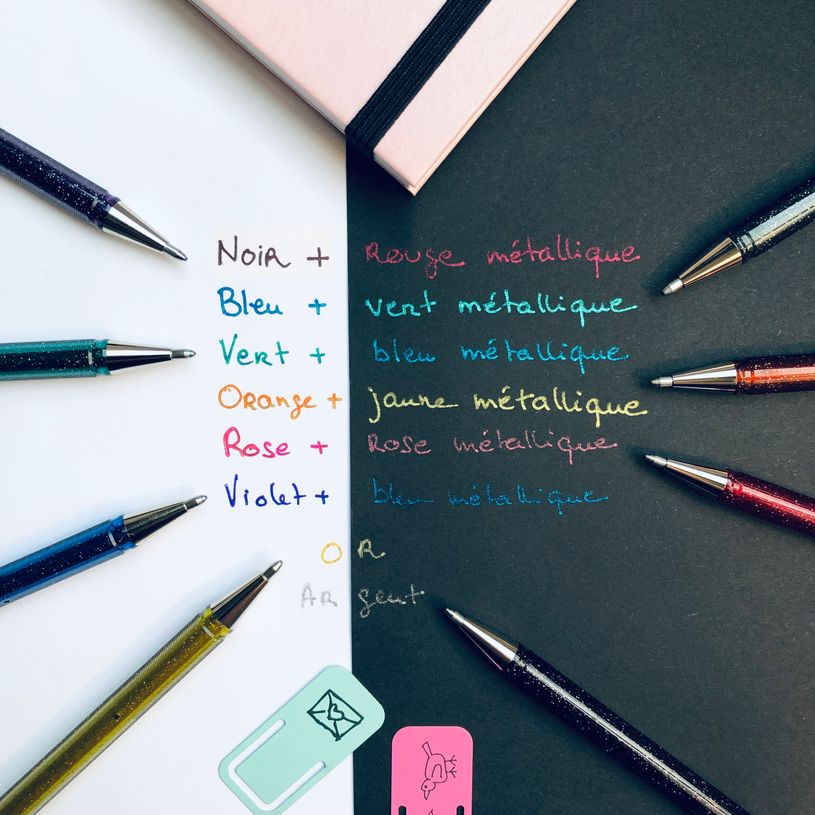 Noir + Rouge métallique
Bleu + vert métallique
Vert + bleu métallique
Orange + jaune métallique
Rose + Rose métallique
Violet + bleu métallique
OR
Argent